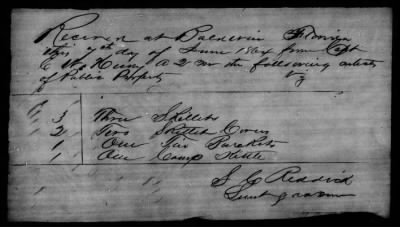 Received at Baldwin Florida
this 7th day of June 1864 from Capt
A 2 m the following articles
of Public Property Viz
3 Three Skillets
2 Two Skillet Covers
1 One
1 One Camp Kettle
S C Reddick
Lieut